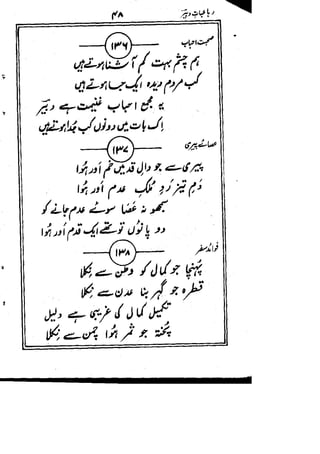 رباعیات دبیر ۴۸
صحبت احباب
۱۳۶
ہم چشم بہت کم آشنا ہوتے ہیں
کب مردم دیدہ ایک جا ہوتے ہیں
یہ مجمع احباب غنیمت ہے دبیر
اک بات میں دونوں لب جدا ہوتے ہیں
عصائے پیری
۱۳۷
پیری سے جو دال قد میں خم اور ہوا
دم تیز رَوِ ملکِ عدم اور ہوا
سمجھو نہ عصا سوئے عدم جانے کو
دو پانوں تو تھے ایک قدم اور ہوا
فوائد سفر
۱۳۸
پہنچا جو کمال کو وطن سے نکلا
قطرہ جو گہر بنا عدن سے نکلا
تکمیل کمال کی غریبی ہے دلیل
پختہ جو ثمر ہوا چمن سے نکلا